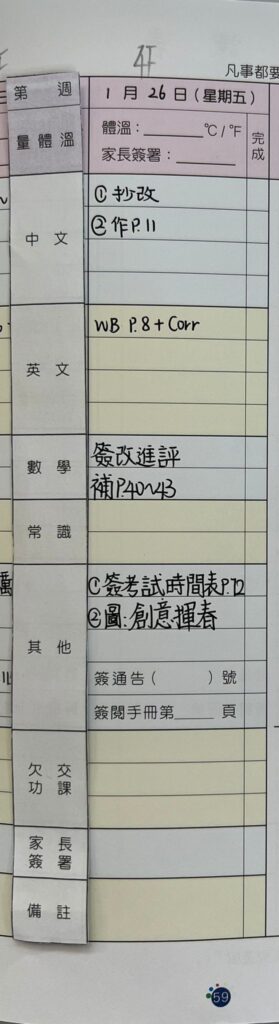 4F
凡事都要
第 週
1 月 26 日 (星期五)
量體溫
體溫：______°C / °F
家長簽署：______
完成
中文
①抄改
②作P.11
英文
WB P.8 + Corr
數學
簽改進評
補P.40~43
常識
其他
①簽考試時間表P.72
②圖:創意揮春
簽通告 ( ) 號
簽閱手冊第____頁
欠交功課
家長簽署
備註
59